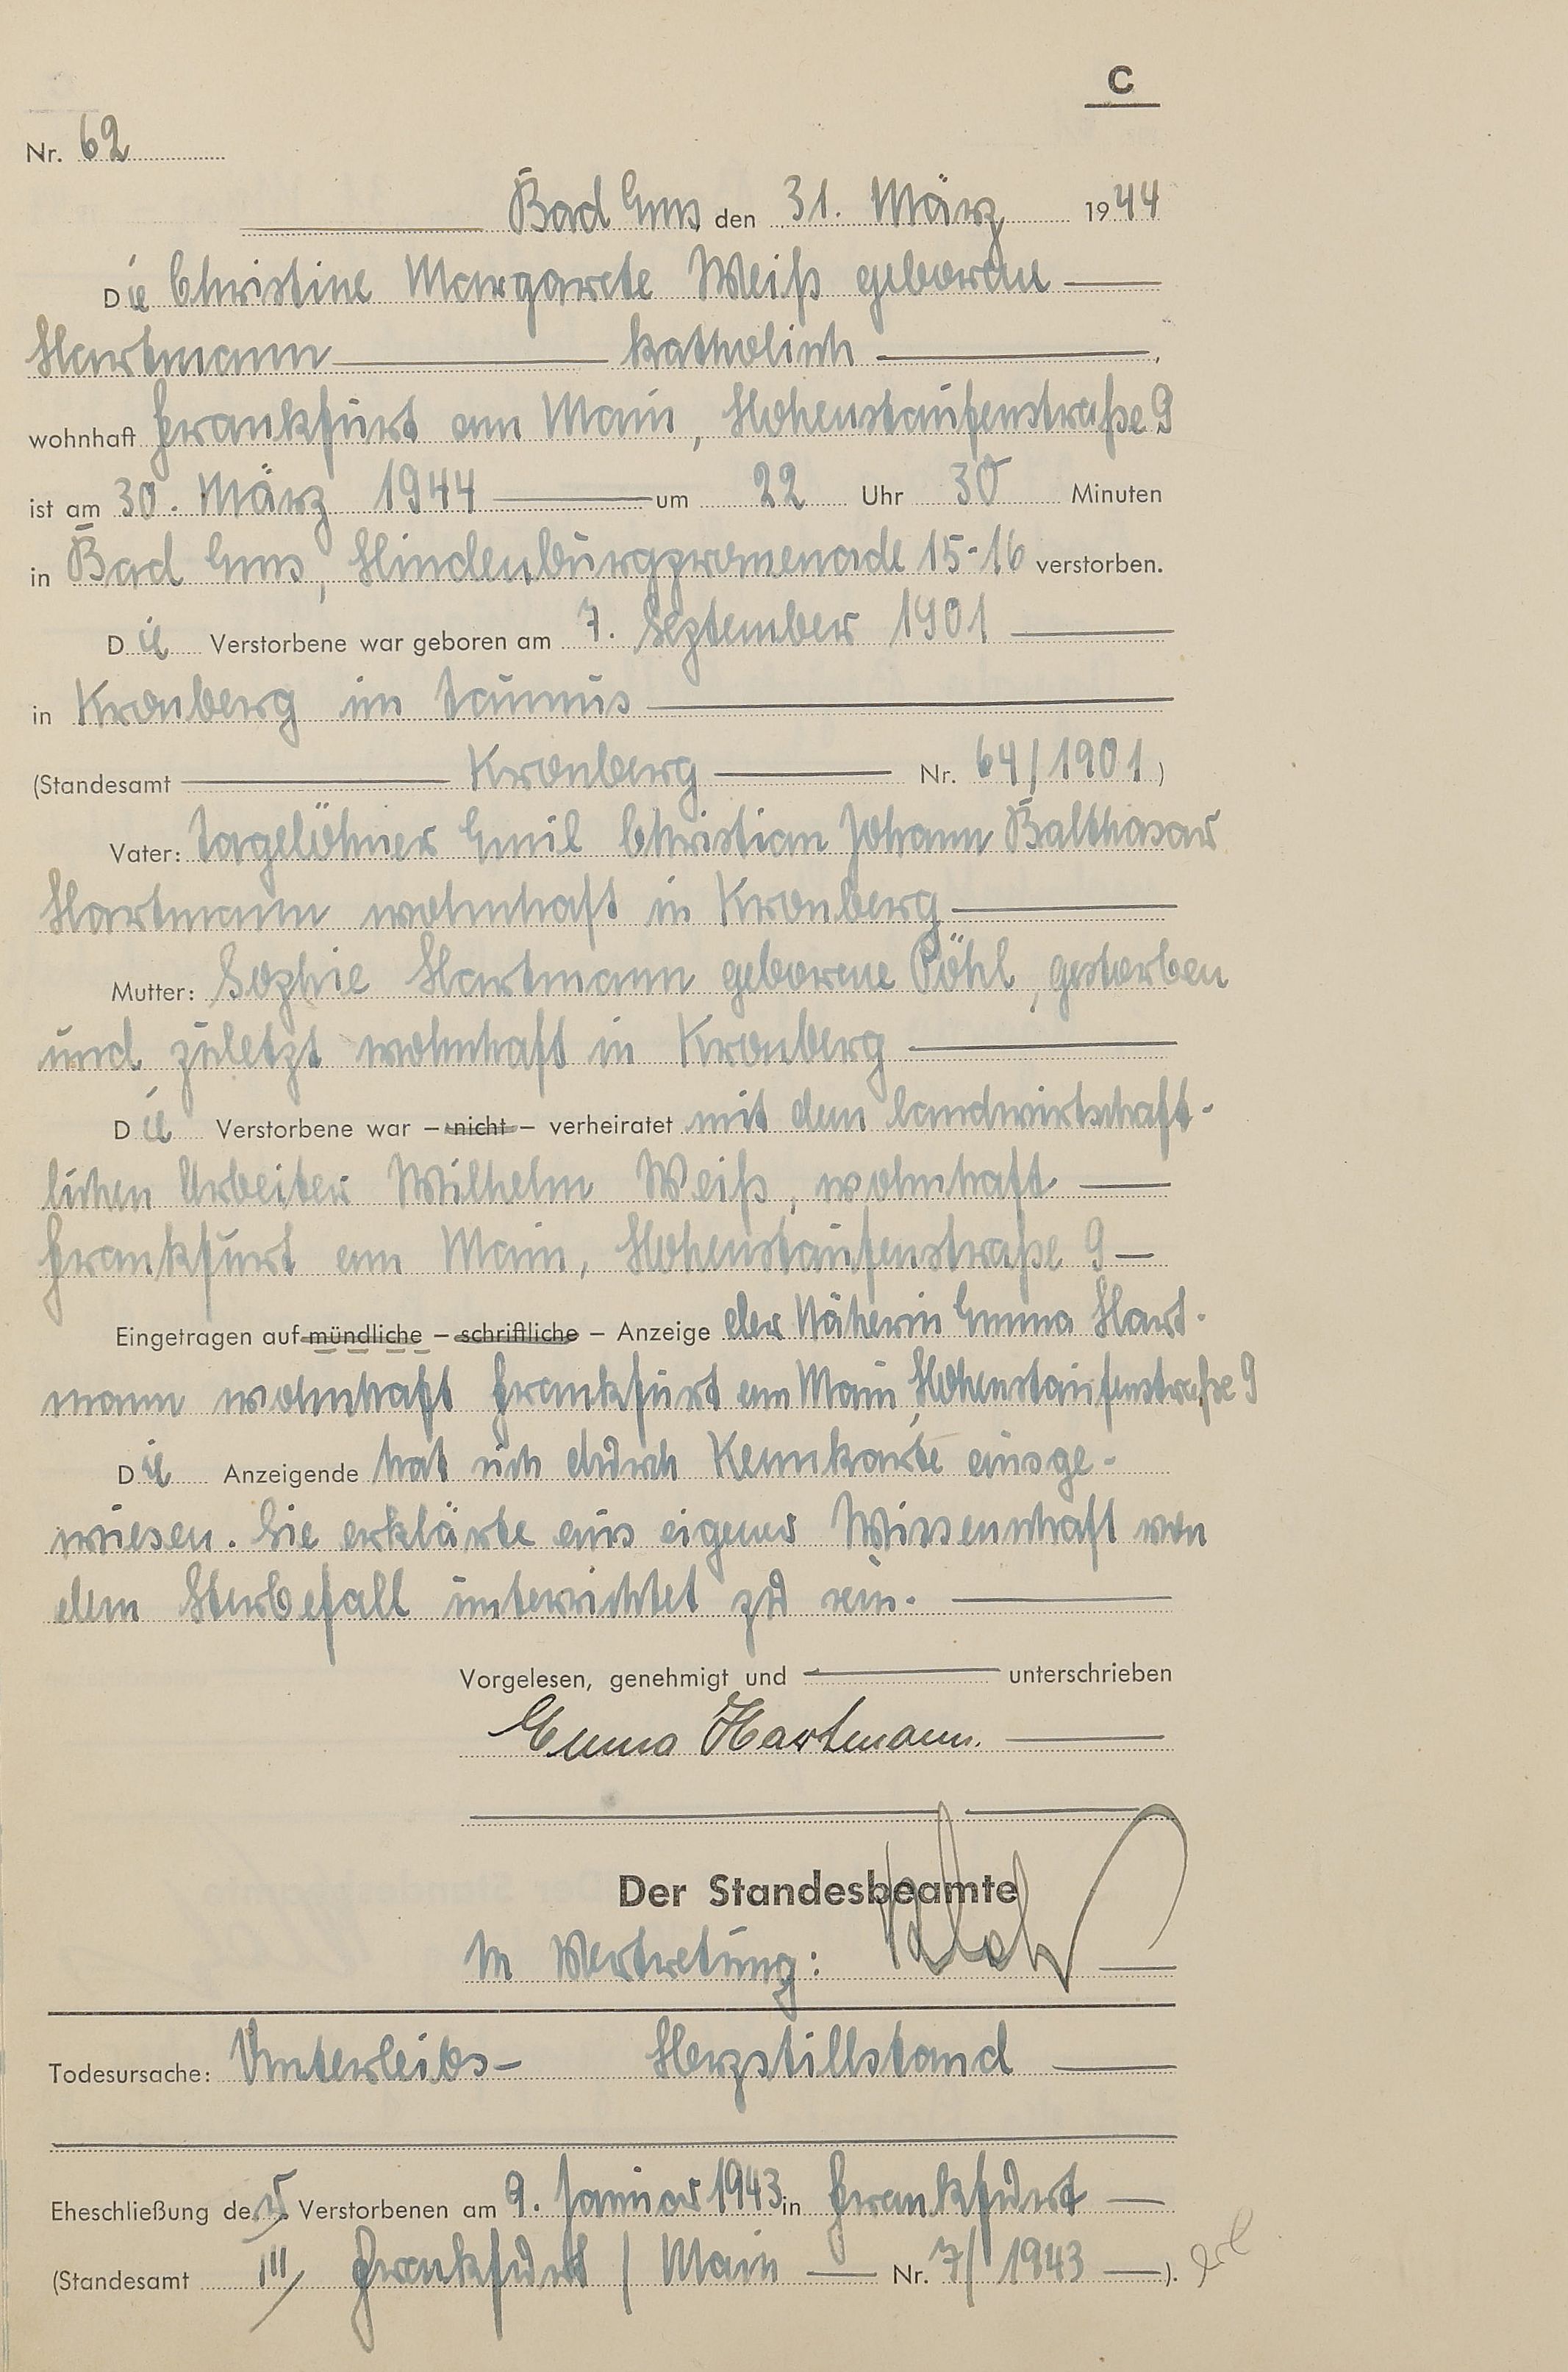 C
Nr. 62
Bad Ems den 31. März 1944
Die Christine Margarete Weiß geboren
Hartmann katholisch,
wohnhaft Frankfurt am Main, Hohenstaufenstraße 9
ist am 30. März 1944 um 22 Uhr 30 Minuten
in Bad Ems, Hindenburgpromenade 15-16 verstorben.
Die Verstorbene war geboren am 7. September 1901
in Kronberg im Taunus
(Standesamt Kronberg Nr. 64/1901)
Vater: Tagelöhner Emil Christian Johann Balthasar
Hartmann wohnhaft in Kronberg
Mutter: Sophie Hartmann geborene Pöhl, gestorben
und zuletzt wohnhaft in Kronberg
Die Verstorbene war – nicht – verheiratet mit dem landwirtschaft-
lichen Arbeiter Wilhelm Weiß, wohnhaft
Frankfurt am Main, Hohenstaufenstraße 9
Eingetragen auf mündliche – schriftliche – Anzeige der Näherin Emma Hart-
mann wohnhaft Frankfurt am Main, Hohenstaufenstraße 9
Die Anzeigende hat sich durch Kennkarte ausge-
wiesen. Sie erklärte aus eigener Wissenschaft von
dem Sterbefall unterrichtet zu sein.
Vorgelesen, genehmigt und unterschrieben
Emma Hartmann.
Der Standesbeamte
In Vertretung:
Todesursache: Unterleibs- Herzstillstand
Eheschließung der Verstorbenen am 9. Januar 1943 in Frankfurt
(Standesamt III Frankfurt / Main Nr. 7/1943).